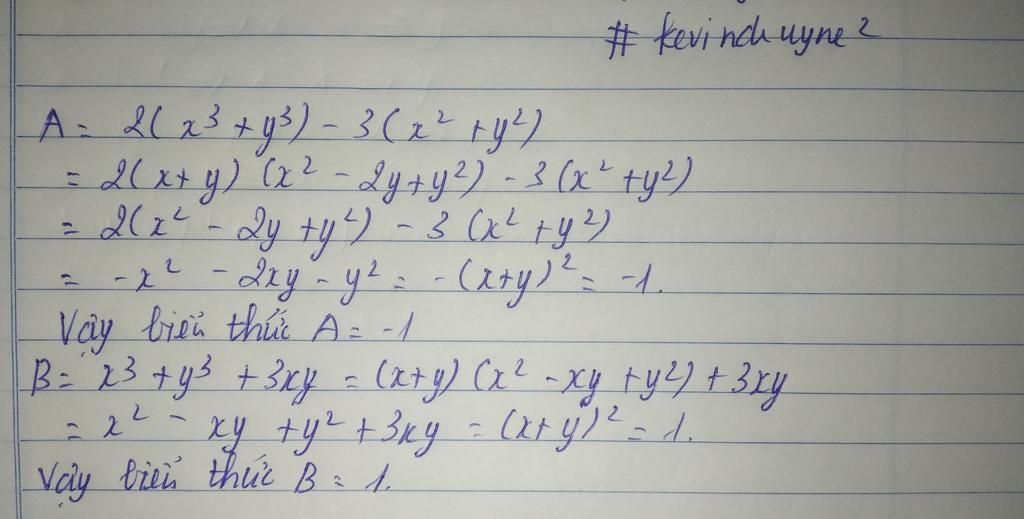 # kevinchuyne 2
A = 2(x³ + y³) - 3(x² + y²)
= 2(x + y) (x² - 2y + y²) - 3(x² + y²)
= 2(x² - 2y + y²) - 3 (x² + y²)
= -x² - 2xy - y² = -(x+y)² = -1.
Vậy biểu thức A = -1
B = x³ + y³ + 3xy = (x+y) (x² - xy + y²) + 3xy
= x² - xy + y² + 3xy = (x+y)² = 1.
Vậy biểu thức B = 1.